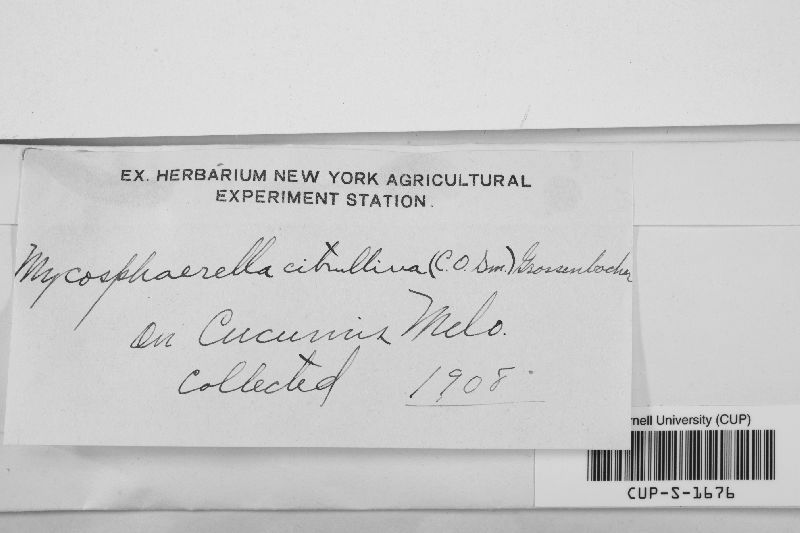 EX. HERBARIUM NEW YORK AGRICULTURAL
EXPERIMENT STATION.
Mycosphaerella citrullina (C.O. Sm.) Grossenbacher
on Cucumis Melo.
Collected 1908
rnell University (CUP)
CUP-S-1676